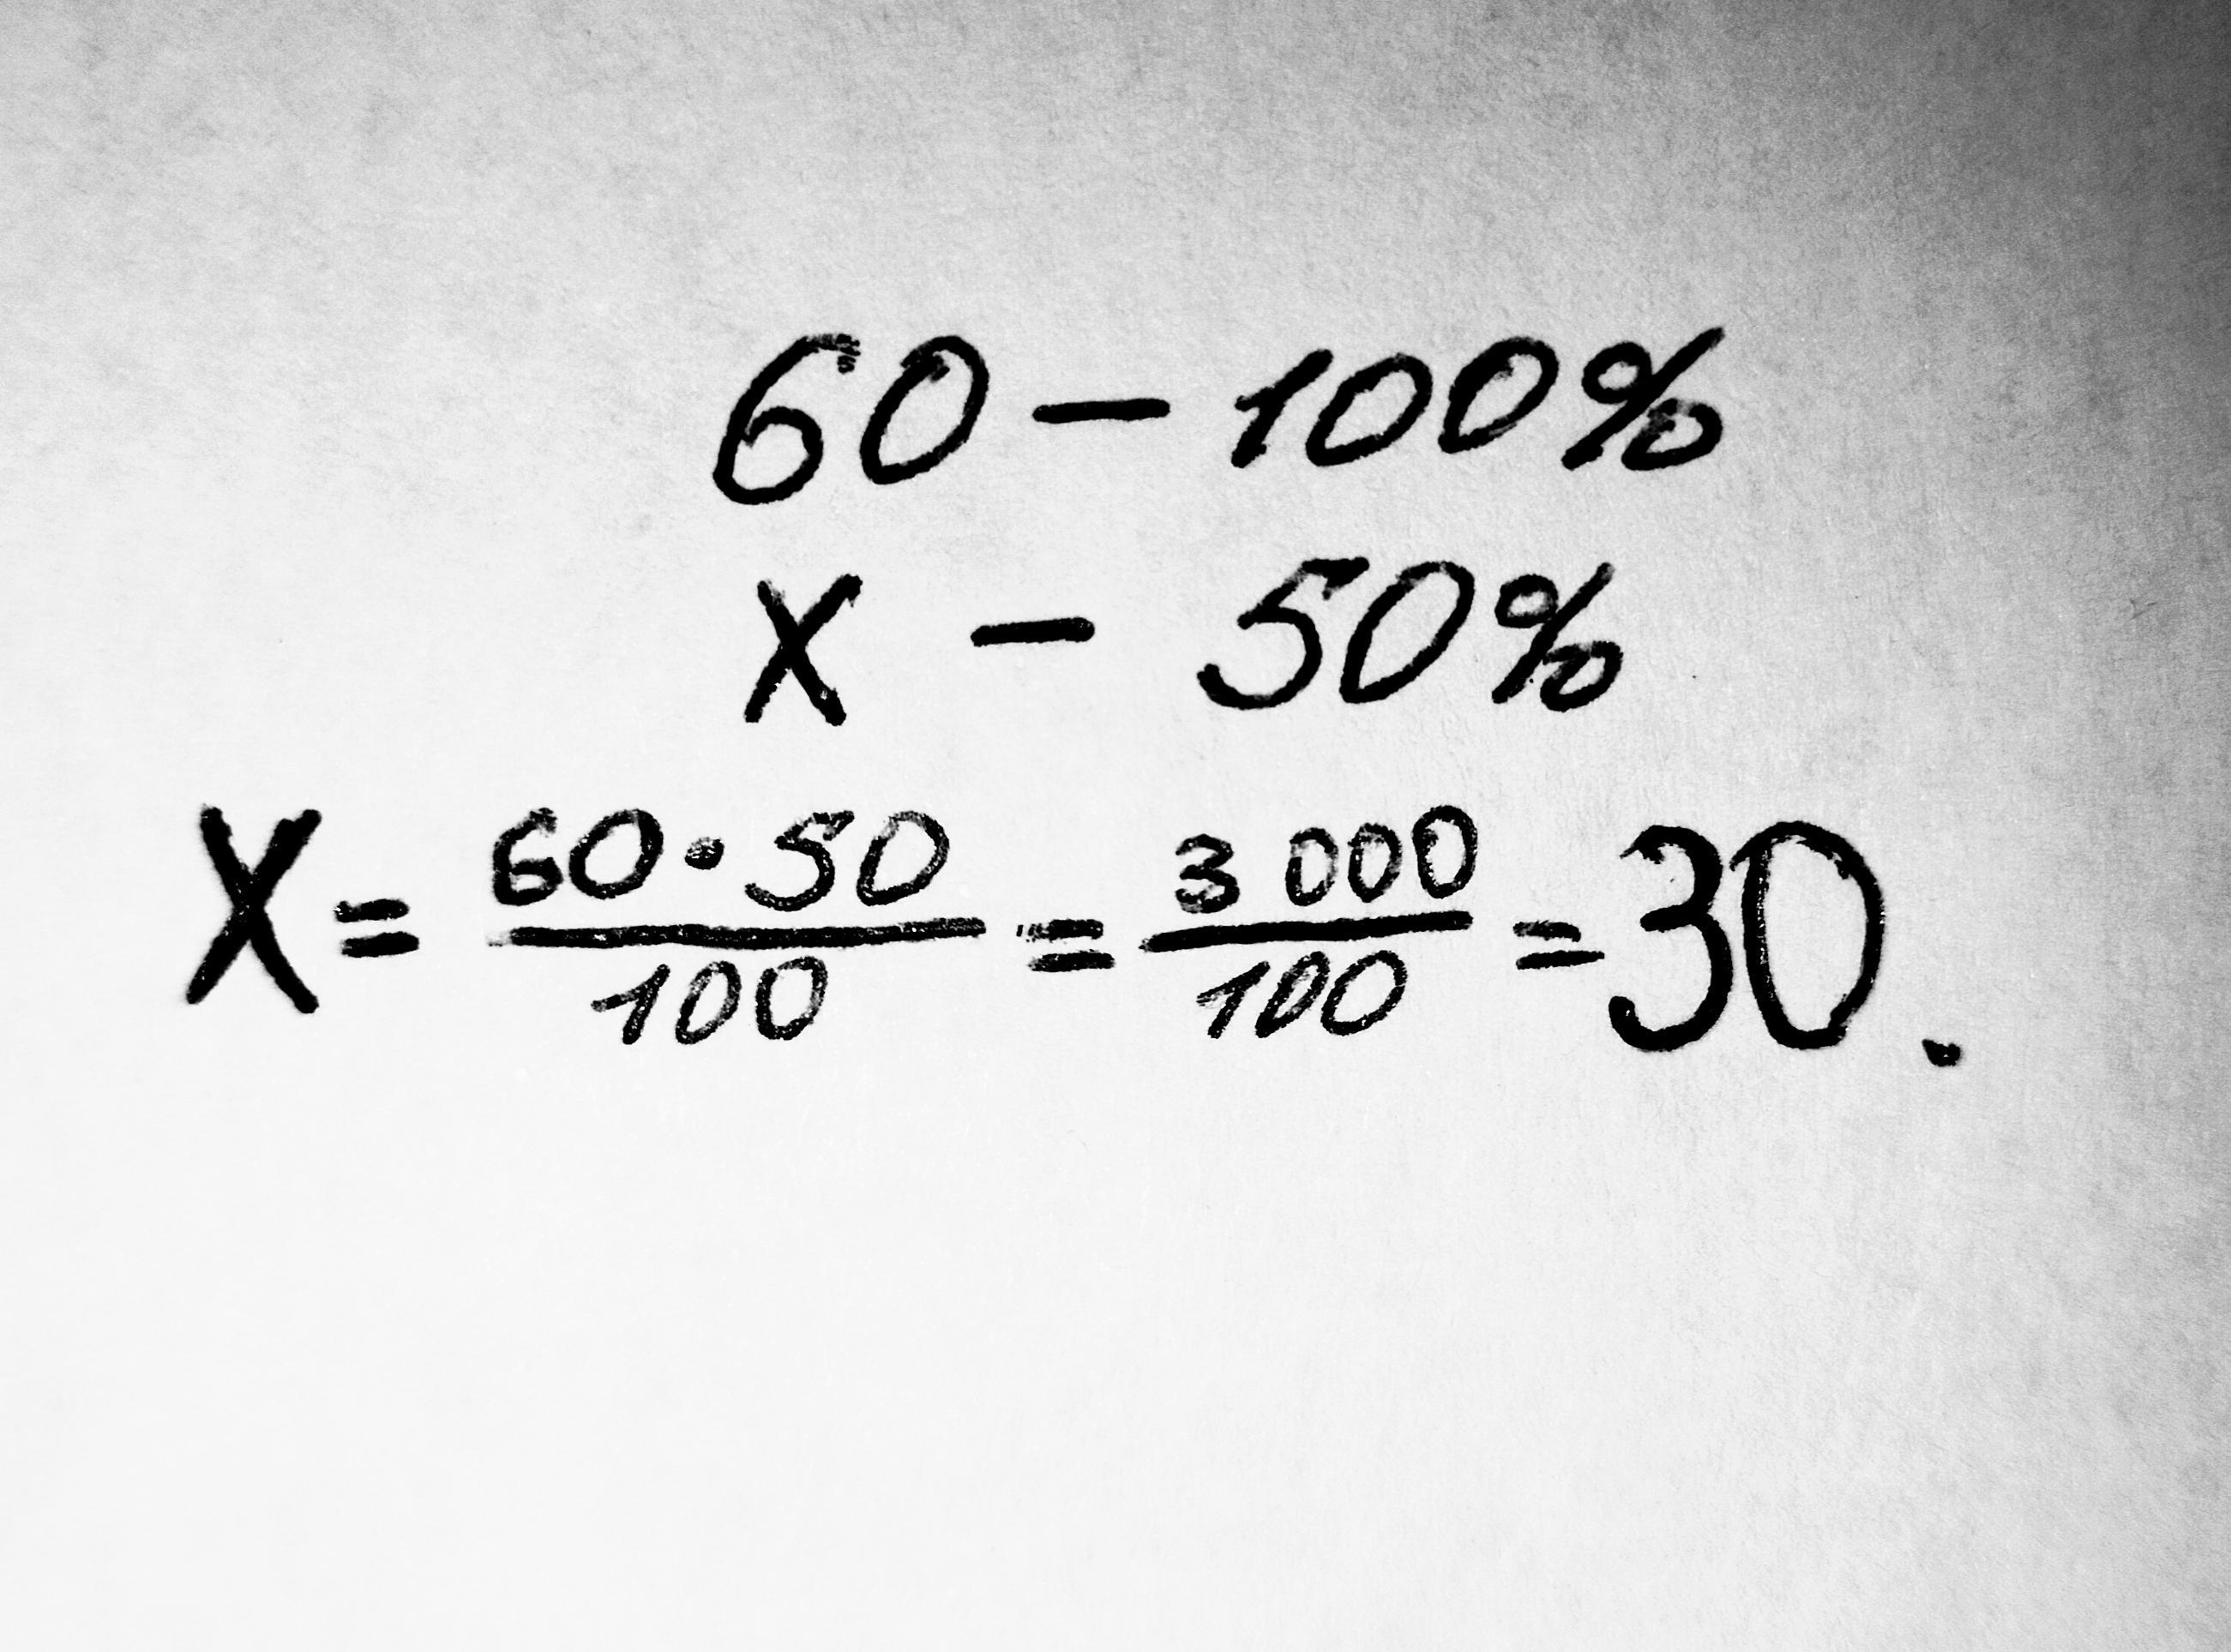 60 – 100%
x – 50%
X = 60·50/100 = 3 000/100 = 30.